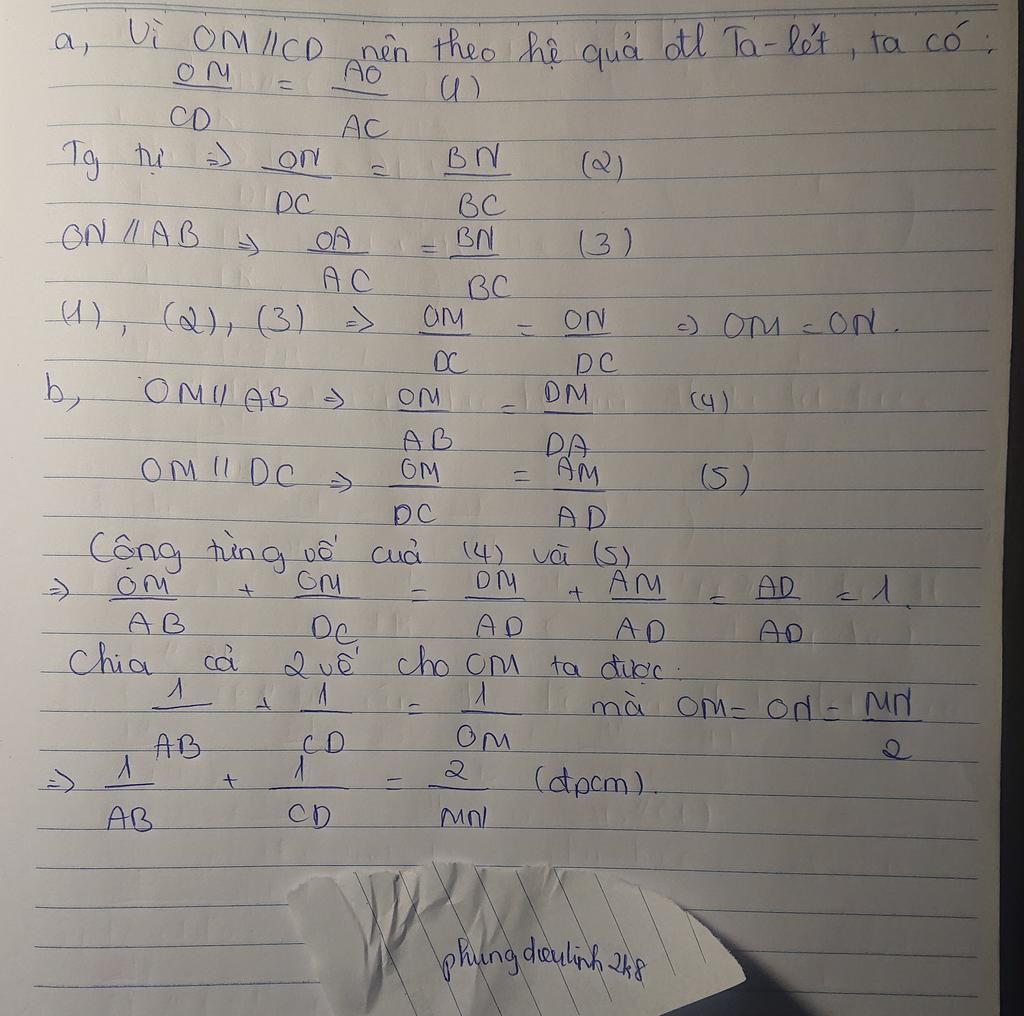 a, Vì OM//CD nên theo hệ quả đtl Ta-lét, ta có:
OM/CD = AO/AC (1)
Tg tự => ON/DC = BN/BC (2)
ON//AB => OA/AC = BN/BC (3)
(1), (2), (3) => OM/DC = ON/DC => OM = ON.
b, OM//AB => OM/AB = DM/DA (4)
OM//DC => OM/DC = AM/AD (5)
Cộng từng vế của (4) và (5)
=> OM/AB + OM/DC = DM/AD + AM/AD = AD/AD = 1.
Chia cả 2 vế cho OM ta được:
1/AB + 1/CD = 1/OM mà OM = ON = MN/2
=> 1/AB + 1/CD = 2/MN (đpcm).
phungdieulinh2k8